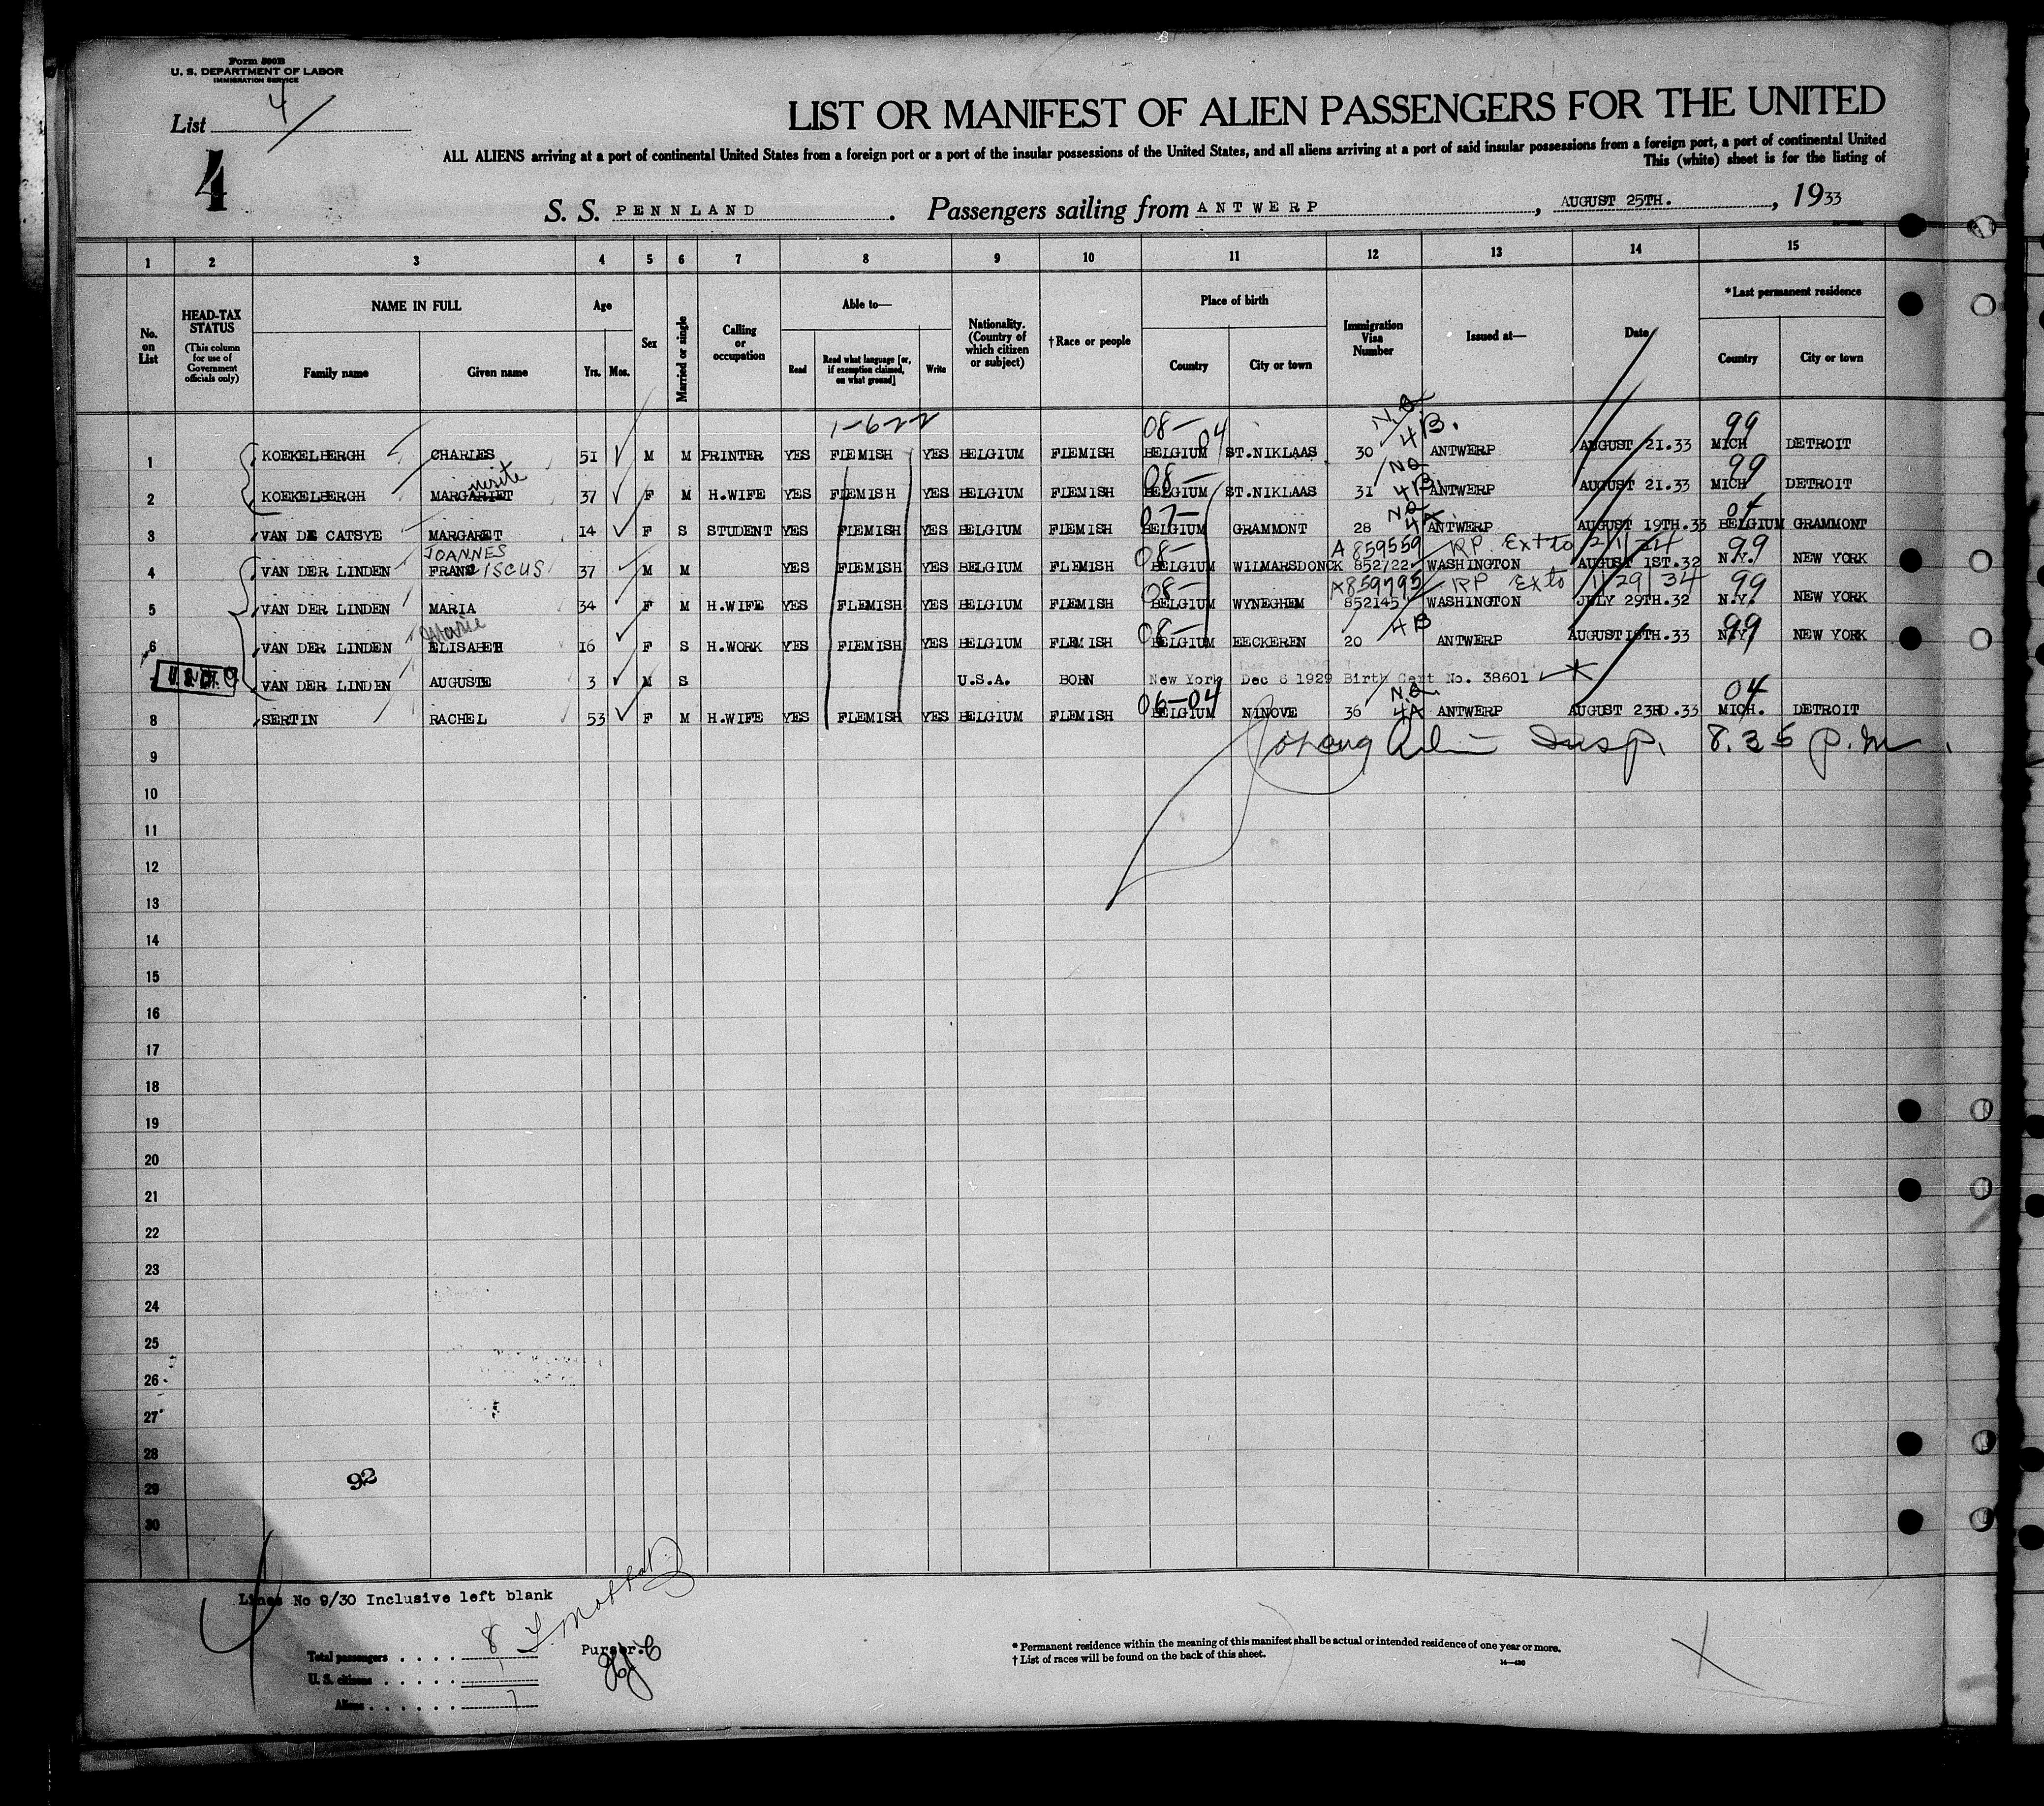 Form 500B
U. S. DEPARTMENT OF LABOR
IMMIGRATION SERVICE
List 4
4
LIST OR MANIFEST OF ALIEN PASSENGERS FOR THE UNITED
ALL ALIENS arriving at a port of continental United States from a foreign port or a port of the insular possessions of the United States, and all aliens arriving at a port of said insular possessions from a foreign port, a port of continental United
This (white) sheet is for the listing of
S. S. PENNLAND . Passengers sailing from ANTWERP , AUGUST 25TH. , 1933
1 2 3 4 5 6 7 8 9 10 11 12 13 14 15
No. on List
HEAD-TAX STATUS (This column for use of Government officials only)
NAME IN FULL Family name Given name
Age Yrs. Mos.
Sex
Married or single
Calling or occupation
Able to— Read Read what language [or, if exemption claimed, on what ground] Write
Nationality. (Country of which citizen or subject)
†Race or people
Place of birth Country City or town
Immigration Visa Number
Issued at—
Date
*Last permanent residence Country City or town
1-6-22 08- 04 NQ 4B. 99
1 KOEKELBERGH CHARLES 51 M M PRINTER YES FLEMISH YES BELGIUM FLEMISH BELGIUM ST.NIKLAAS 30 ANTWERP AUGUST 21.33 MICH DETROIT
uerite 08- NQ 4B 99
2 KOEKELBERGH MARGARIET 37 F M H.WIFE YES FLEMISH YES BELGIUM FLEMISH BELGIUM ST.NIKLAAS 31 ANTWERP AUGUST 21.33 MICH DETROIT
07- NQ 4A. 04
3 VAN DE CATSYE MARGARET 14 F S STUDENT YES FLEMISH YES BELGIUM FLEMISH BELGIUM GRAMMONT 28 ANTWERP AUGUST 19TH.33 BELGIUM GRAMMONT
JOANNES 08- A 859559 RP Ext to 2/1/34 99
4 VAN DER LINDEN FRANS ISCUS 37 M M YES FLEMISH YES BELGIUM FLEMISH BELGIUM WILMARSDONCK 852722 WASHINGTON AUGUST 1ST.32 N.Y. NEW YORK
08- A859795 RP Ex to 1/29/34 99
5 VAN DER LINDEN MARIA 34 F M H.WIFE YES FLEMISH YES BELGIUM FLEMISH BELGIUM WYNEGHEM 852145 WASHINGTON JULY 29TH.32 N.Y. NEW YORK
Marie 08- 4B 99
6 VAN DER LINDEN ELISABETH 16 F S H.WORK YES FLEMISH YES BELGIUM FLEMISH BELGIUM EECKEREN 20 ANTWERP AUGUST 18TH.33 N.Y. NEW YORK
VAN DER LINDEN AUGUSTE 3 M S U.S.A. BORN New York Dec 6 1929 Birth Cert No. 38601
06-04 NQ 4A 04
8 SERTIN RACHEL 53 F M H.WIFE YES FLEMISH YES BELGIUM FLEMISH BELGIUM NINOVE 36 ANTWERP AUGUST 23RD.33 MICH. DETROIT
Insp. 8.35 p.m.
9
10
11
12
13
14
15
16
17
18
19
20
21
22
23
24
25
26
27
28
92
29
30
Lines No 9/30 Inclusive left blank
Total passengers 8
Purser.
U. S. citizens
Aliens 7
* Permanent residence within the meaning of this manifest shall be actual or intended residence of one year or more.
† List of races will be found on the back of this sheet.
14—430